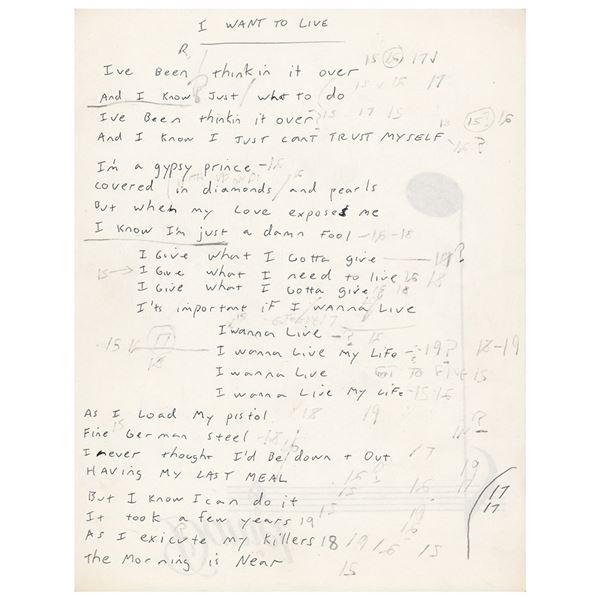 I WANT TO LIVE
R,
15 (16) 17
I've Been thinkin it over
And I Know Just what to do 17
I've Been thinkin it over ? 15 17 15
15 (15?) 16
And I Know I JUST CANT TRUST MYSELF - 16 ?
I'm a gypsy prince - 16
covered in diamonds / and pearls
But when my Love exposes me
I Know I'm just a damn Fool - 16 - 18
I Give what I Gotta give ?
15 → I Give what I need to live 16 18
I Give what I Gotta give 15 18
I'ts important iF I wanna Live
I wanna Live - ? 15
15 16 17 18
I wanna Live My Life - 19 ? 18-19
I wanna Live 15
I wanna Live My Life - 15 16
As I Load My pistol 18 19
Fine German Steel 15
I never thought I'd Be down + Out 17
HAVING MY LAST MEAL 19
But I know I can do it 15
17
17
It took a few years 19
As I exicute my Killers 18 19 16 15
The Morning is Near
15